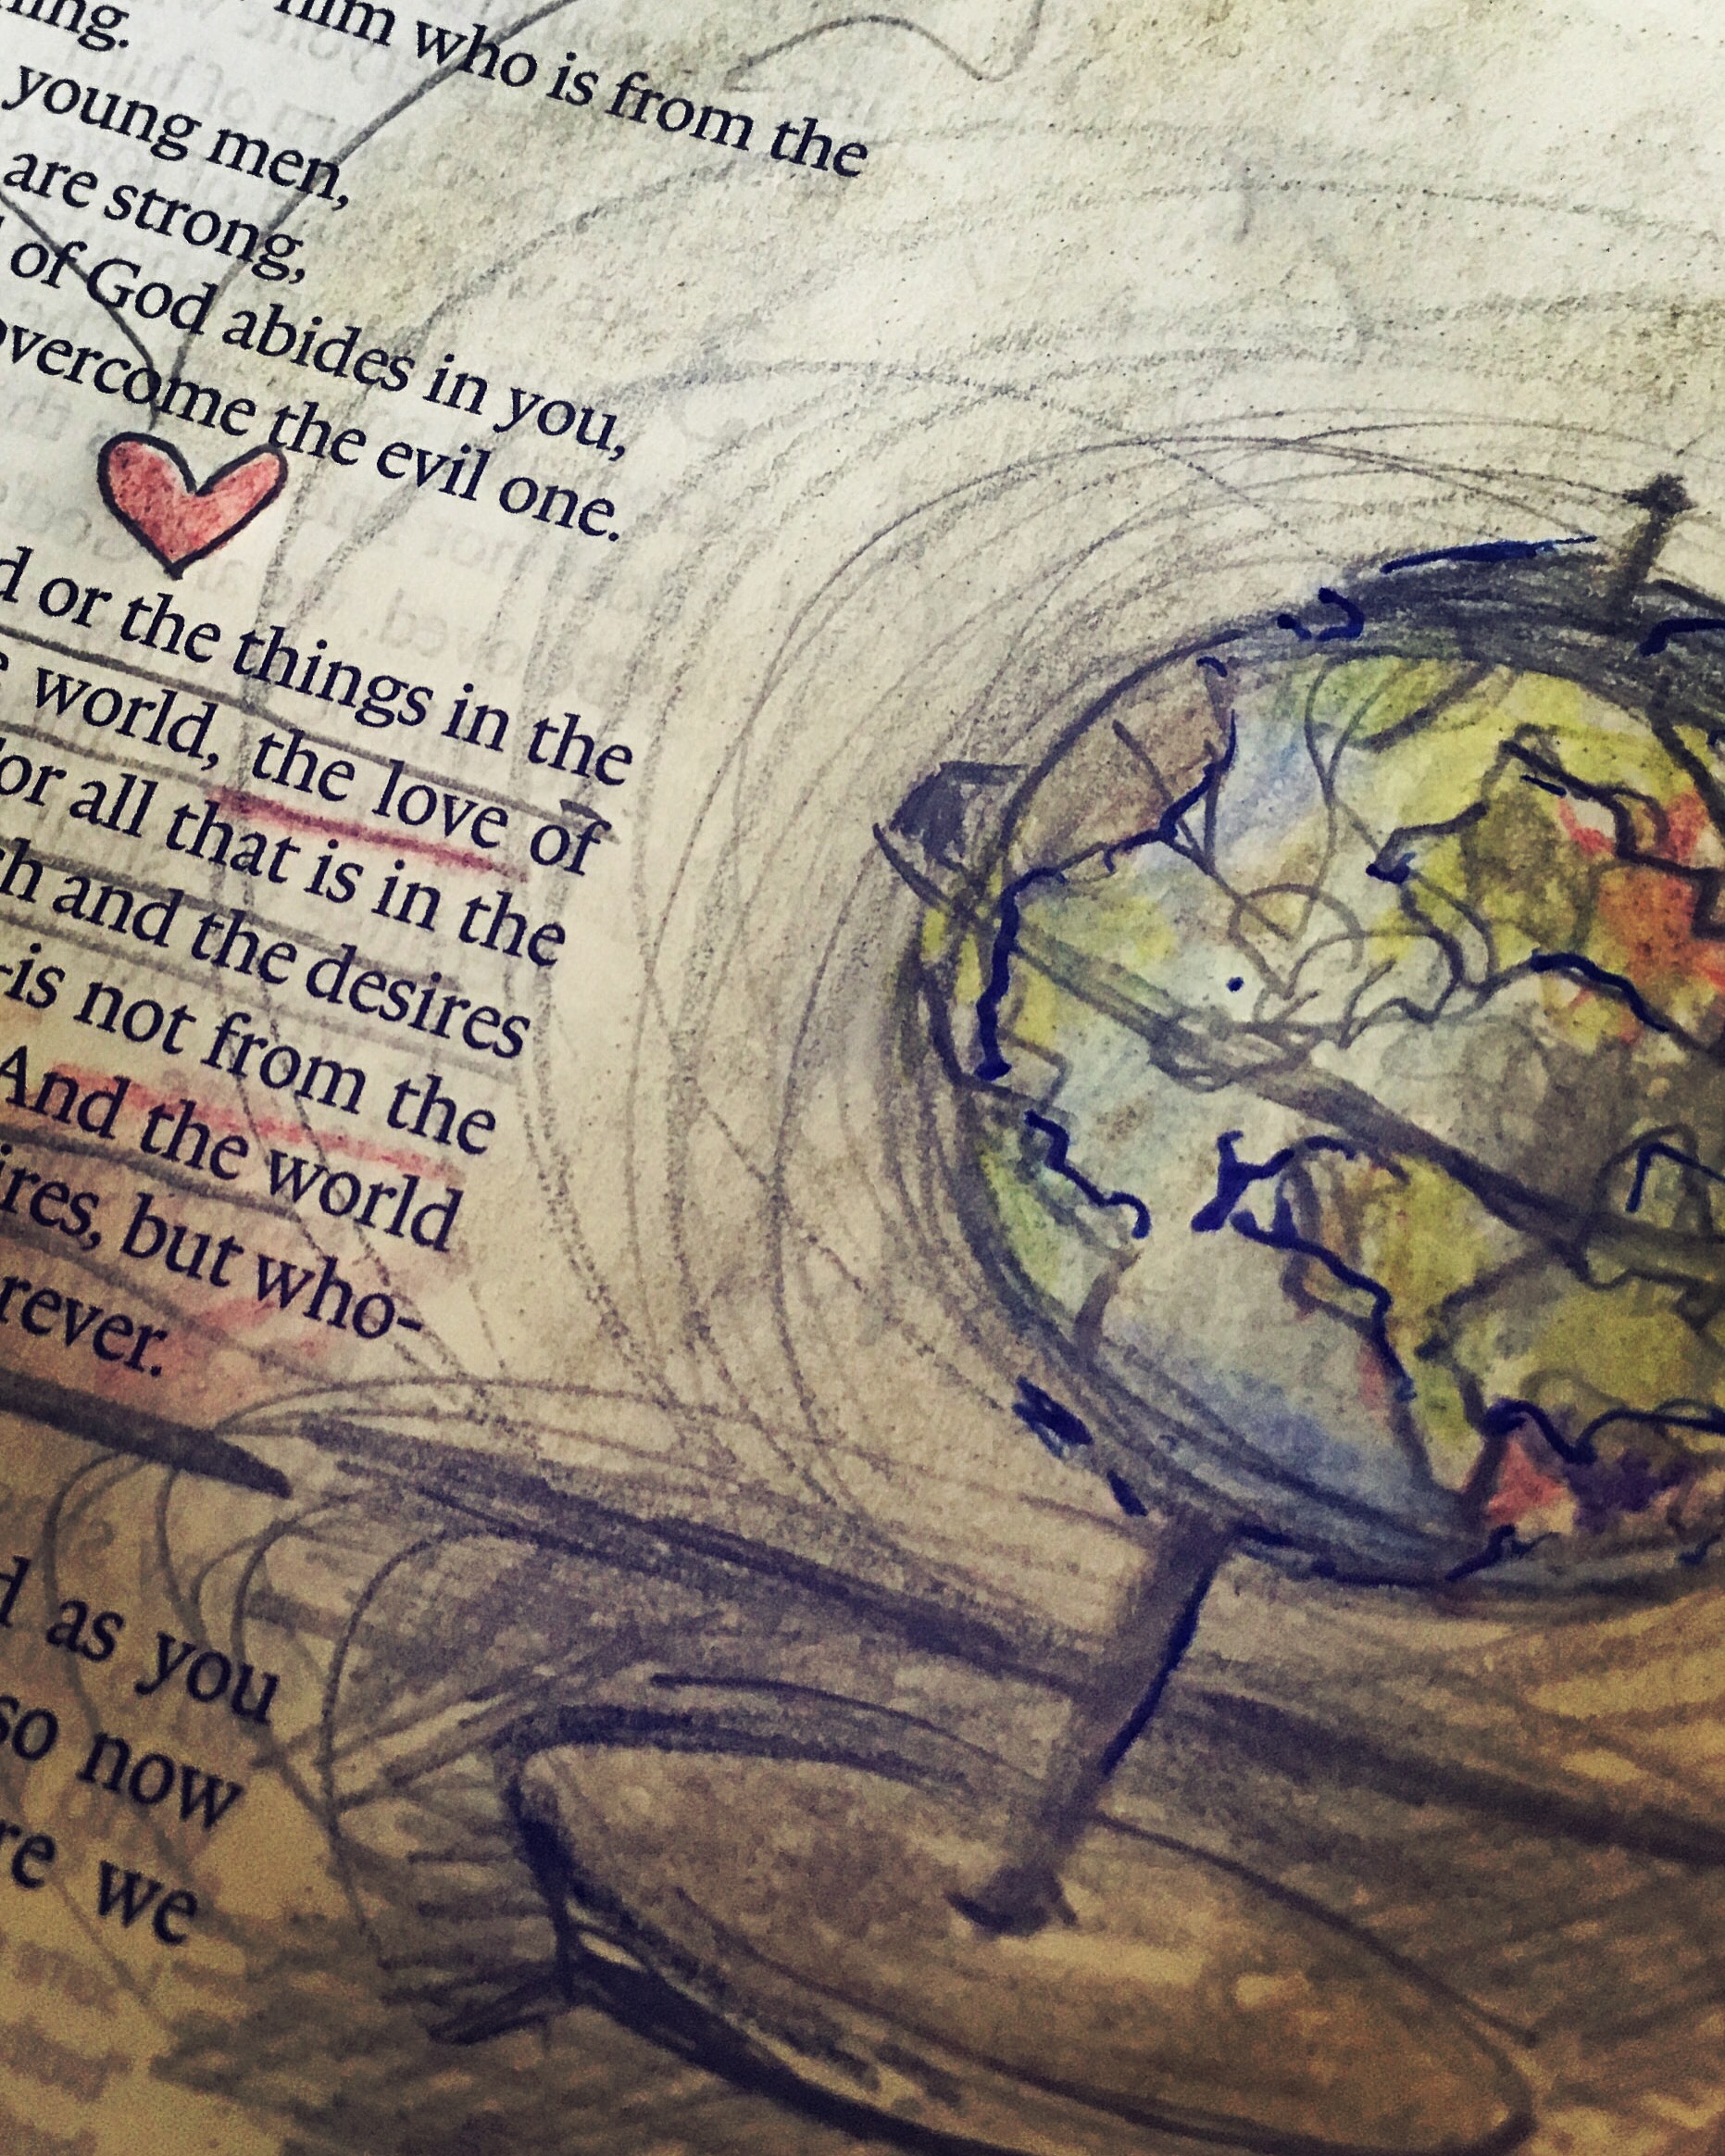 him who is from the
young men,
are strong,
of God abides in you,
overcome the evil one.
or the things in the
world, the love of
for all that is in the
and the desires
-is not from the
And the world
but who-
as you
so now
we